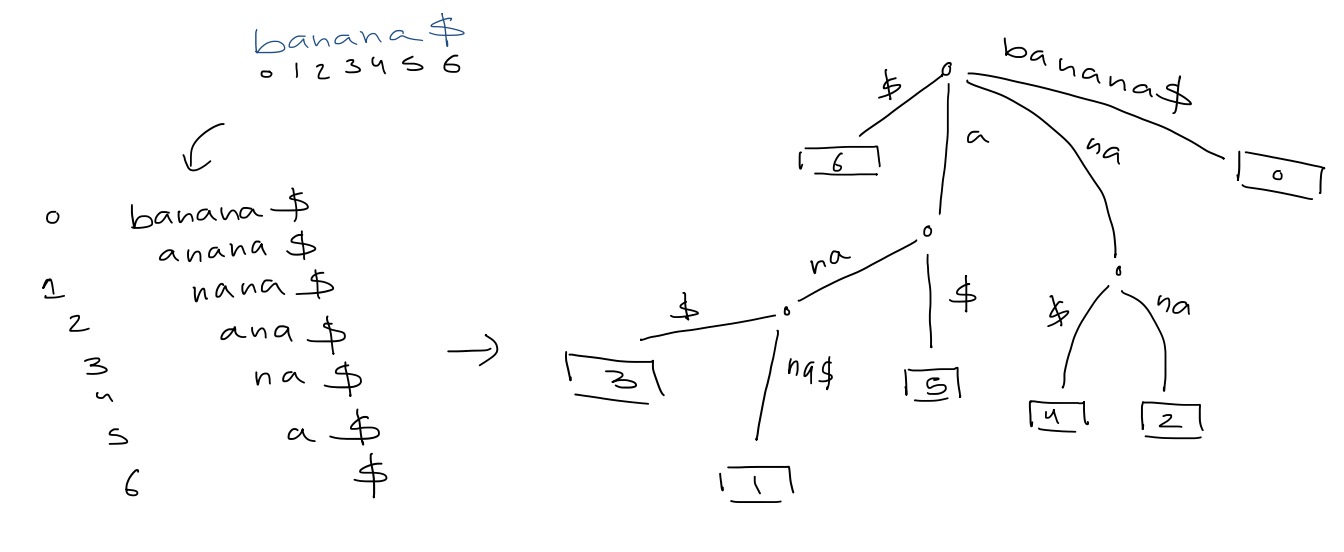 banana $
0 1 2 3 4 5 6
0 banana $
anana $
1 nana $
2 ana $
3 na $
4
5 a $
6 $
banana $
$
a
na
6
0
na
$
$
na
$
na$
3
5
4
2
1